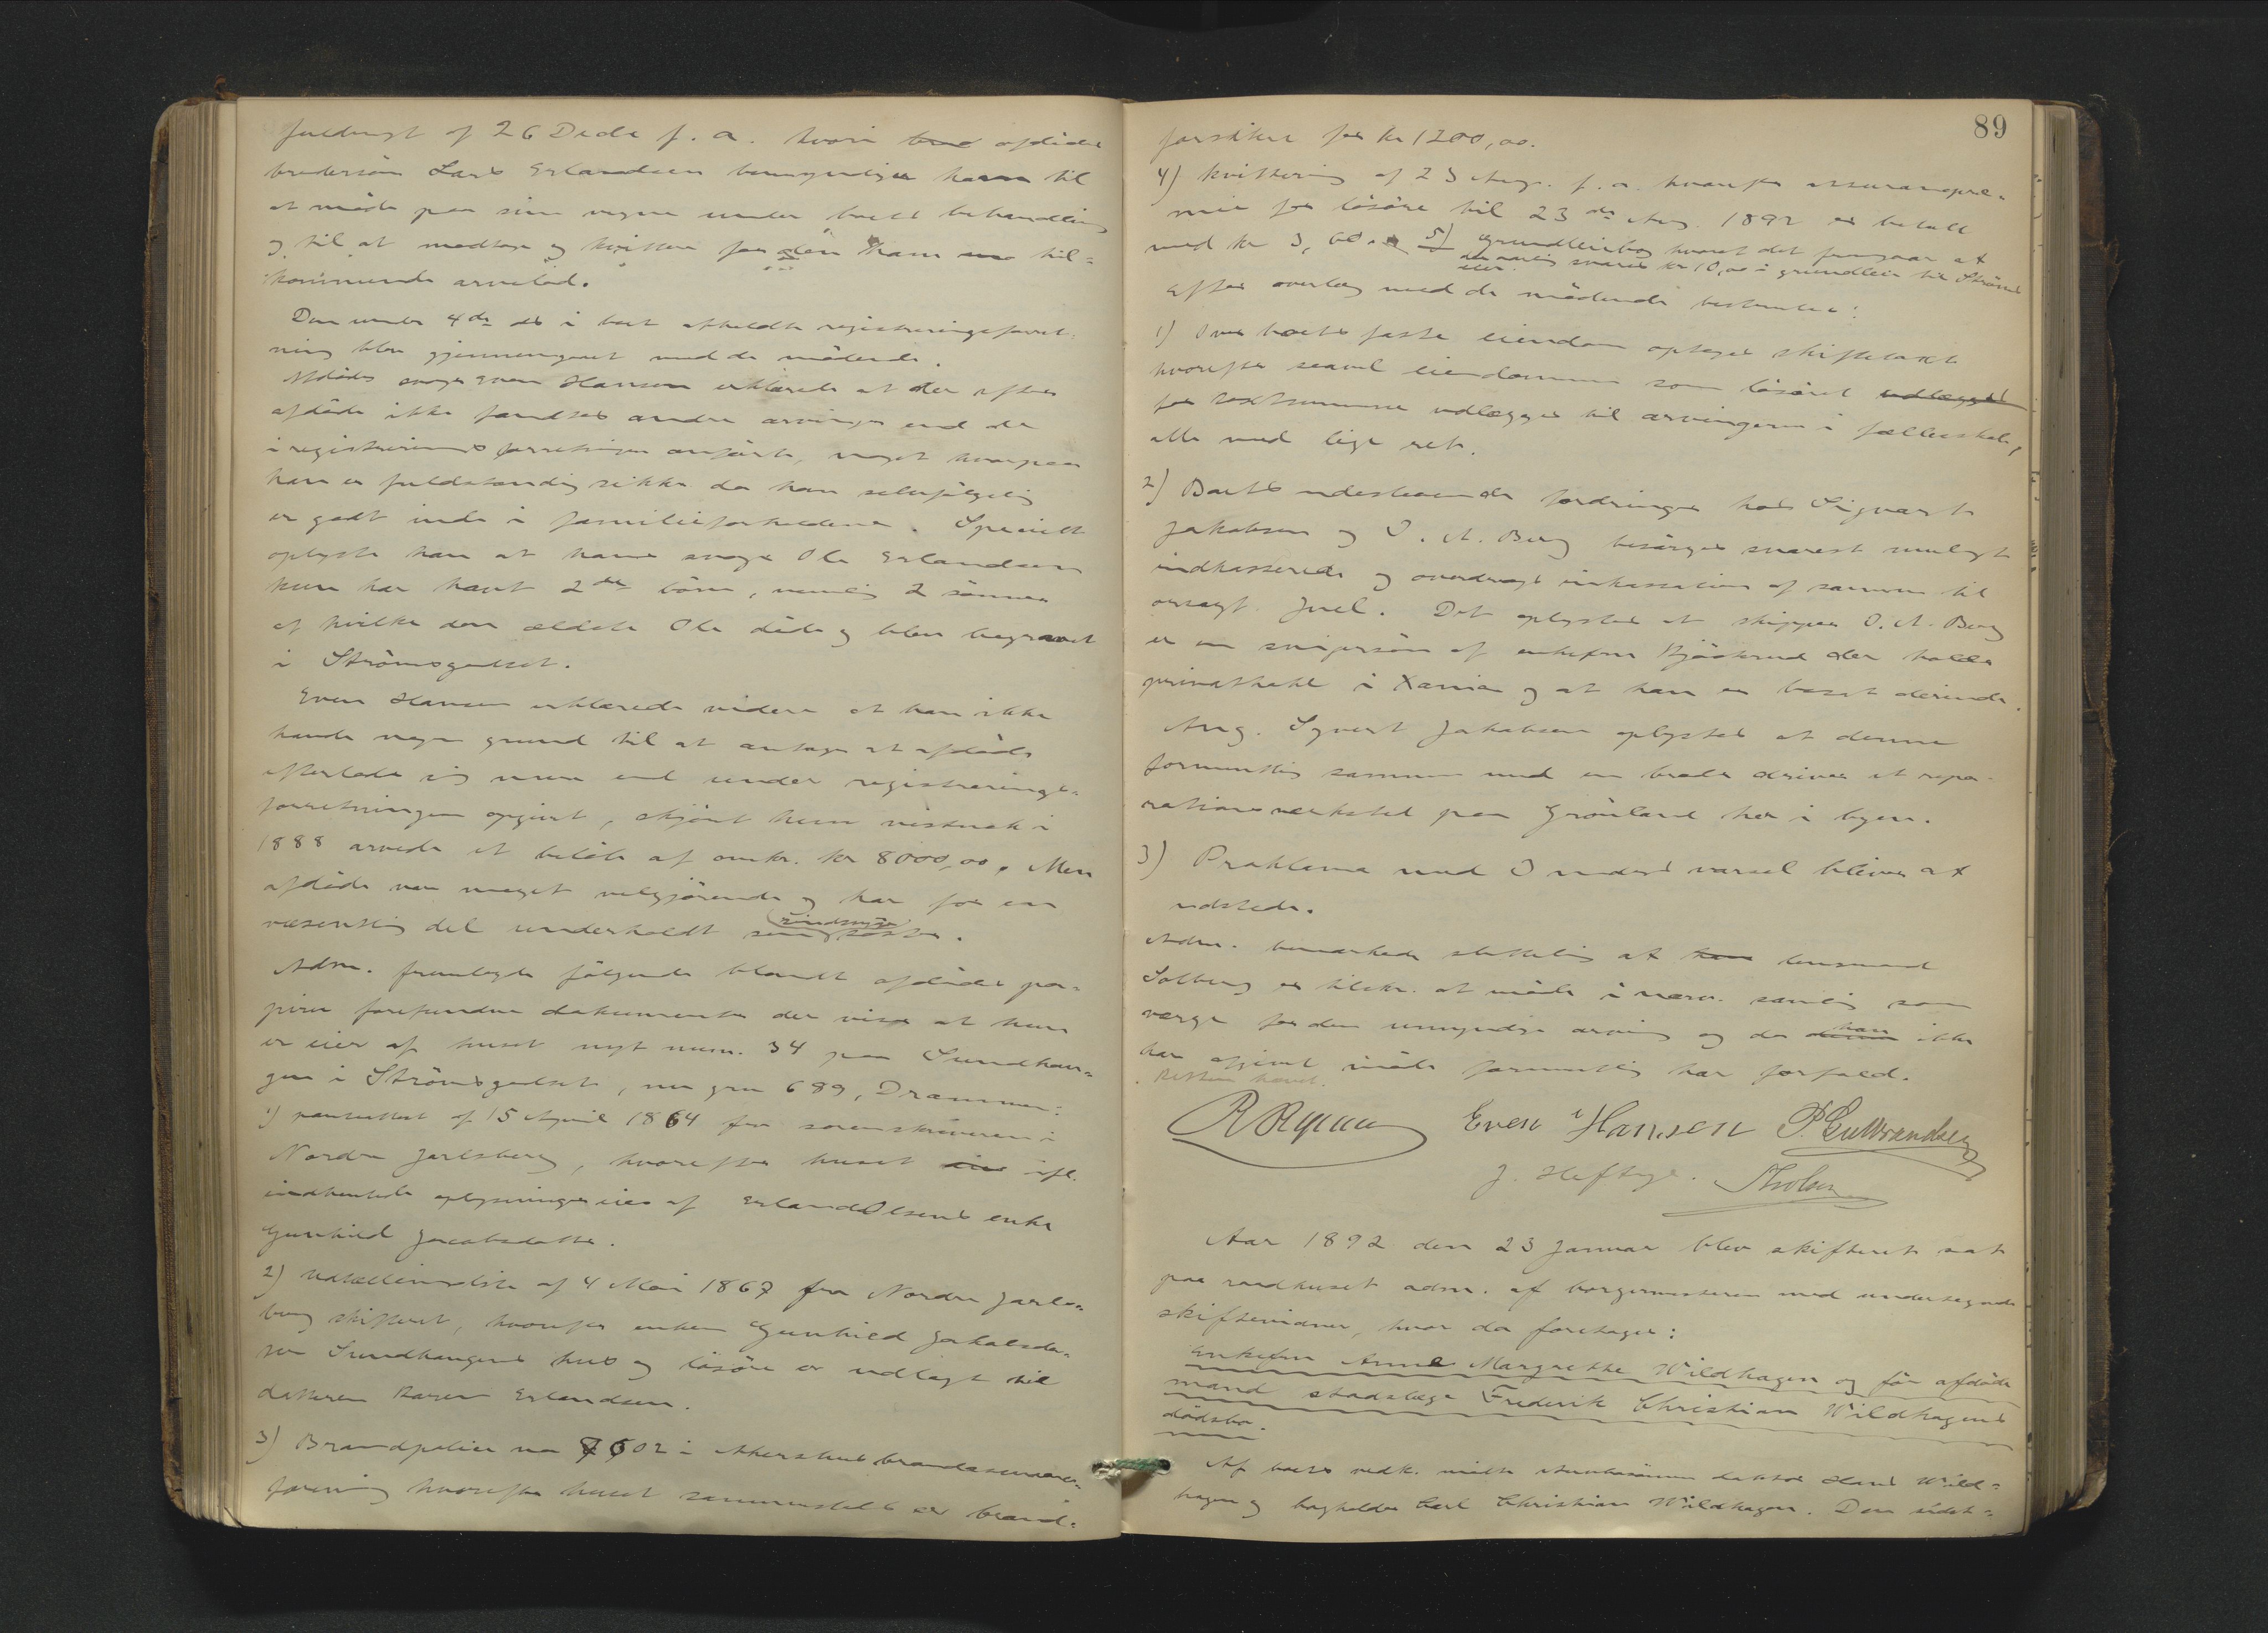 fuldmagt af 26 Decbr f. a. hvori afdødes
brodersøn Lars Erlandsen bemyndiger ham til
at møde paa sine vegne under boets behandling
og til at modtage og kvittere for den ham til=
kommende arvelod.
Den under 4de ds i boet afholdte registreringsforret=
ning blev gjennemgaaet med de mødende.
Afdødes svoger Even Hansen erklærede at der efter
afdøde ikke fandtes andre arvinger end de
i registreringsforretningen anførte, noget hvorpaa
han er fuldstændig sikker da han selvfølgelig
er godt inde i familieforholdene. Specielt
oplyste han at hans svoger Ole Erlandsen
kun har havt 2de børn, nemlig 2 sønner
af hvilke den ældste Ole døde og blev begravet
i Strømsgodset.
Even Hansen erklærede videre at han ikke
havde nogen grund til at antage at afdøde
efterlod sig mere end under registrerings=
forretningen opgivet, skjønt hun vistnok i
1888 arvede et beløb af omkr. kr 8000,00. Men
afdøde var meget velgjørende og har for en
væsentlig del underholdt sin sindssyge søster.
Adm. fremlagde følgende blandt afdødes pa=
pirer forefundne dokumenter der viser at hun
er eier af huset nyt num. 34 paa Sundhau=
gen i Strømsgodset, nu gno 689, Drammen:
1) panteattest af 15 April 1864 fra sorenskriveren i
Nordre Jarlsberg, hvorefter huset ifl.
indhentede oplysninger eies af Erland Olsens enke
Gunhild Jacobsdatter.
2) Udlodningsliste af 4 Mai 1867 fra Nordre Jarls=
berg skifteret, hvorefter enken Gunhild Jakobsda=
ter Sundhaugens hus og løsøre er udlagt til
datteren Karen Erlandsen.
3) Brandpolice no 7602 i Akershus brandassurance=
forening hvorefter huset sammesteds er brand=
89
forsikret for kr 1200,00.
4) Kvittering af 23 Aug. f. a. hvorefter assurancepræ=
mie for løsøre til 23de Aug. 1892 er betalt
med kr 3,60. 5) Grundleiebog hvoraf det fremgaar at
der aarlig svares kr 10,00 i grundleie til Strøms
eier.
Efter overlæg med de mødende bestemtes:
1) Over boets faste eiendom optages skiftetaxt
hvorefter saavel eiendommen som løsøret udlægges
for taxtsummen udlægges til arvingerne i fælleskab,
alle med lige ret.
2) Boets udestaaende fordringer hos Sigvart
Jakobsen og O. A. Berg besørges snarest muligt
indkasserede og overdrages inkassation af samme til
overagt. Juel. Det oplystes at skipper O. A. Berg
er en svigersøn af enkefru Kjøsterud der holder
privathotel i Xania og at han er bosat derinde.
Ang. Syvert Jakobsen oplystes at denne
formentlig sammen med en broder driver et repa=
rationsværksted paa Grønland her i byen.
3) Proklama med 3 mdrs varsel bliver at
udstede.
Adm. bemærkede slutteligen at lensmand
Solberg er tilskr. at møde i nærv. samling som
værge for den umyndige arving og da han ikke
har afgivet møde formentlig har forfald.
Retten hævet.
R Rycen Even Hansen P. Gulbrandsen
J. Heftye. Tholsen
Aar 1892 den 23 Januar blev skifteret sat
paa raadhuset adm. af borgermesteren med undertegnede
skiftevidner, hvor da foretages:
Enkefru Anne Margrethe Wildhagen og før afdøde
mand stadslæge Frederik Christian Wildhagens
dødsbo.
Af boets vedk. mødte doktor Hans Wild=
hagen og bogholder Carl Christian Wildhagen. Den sidst=